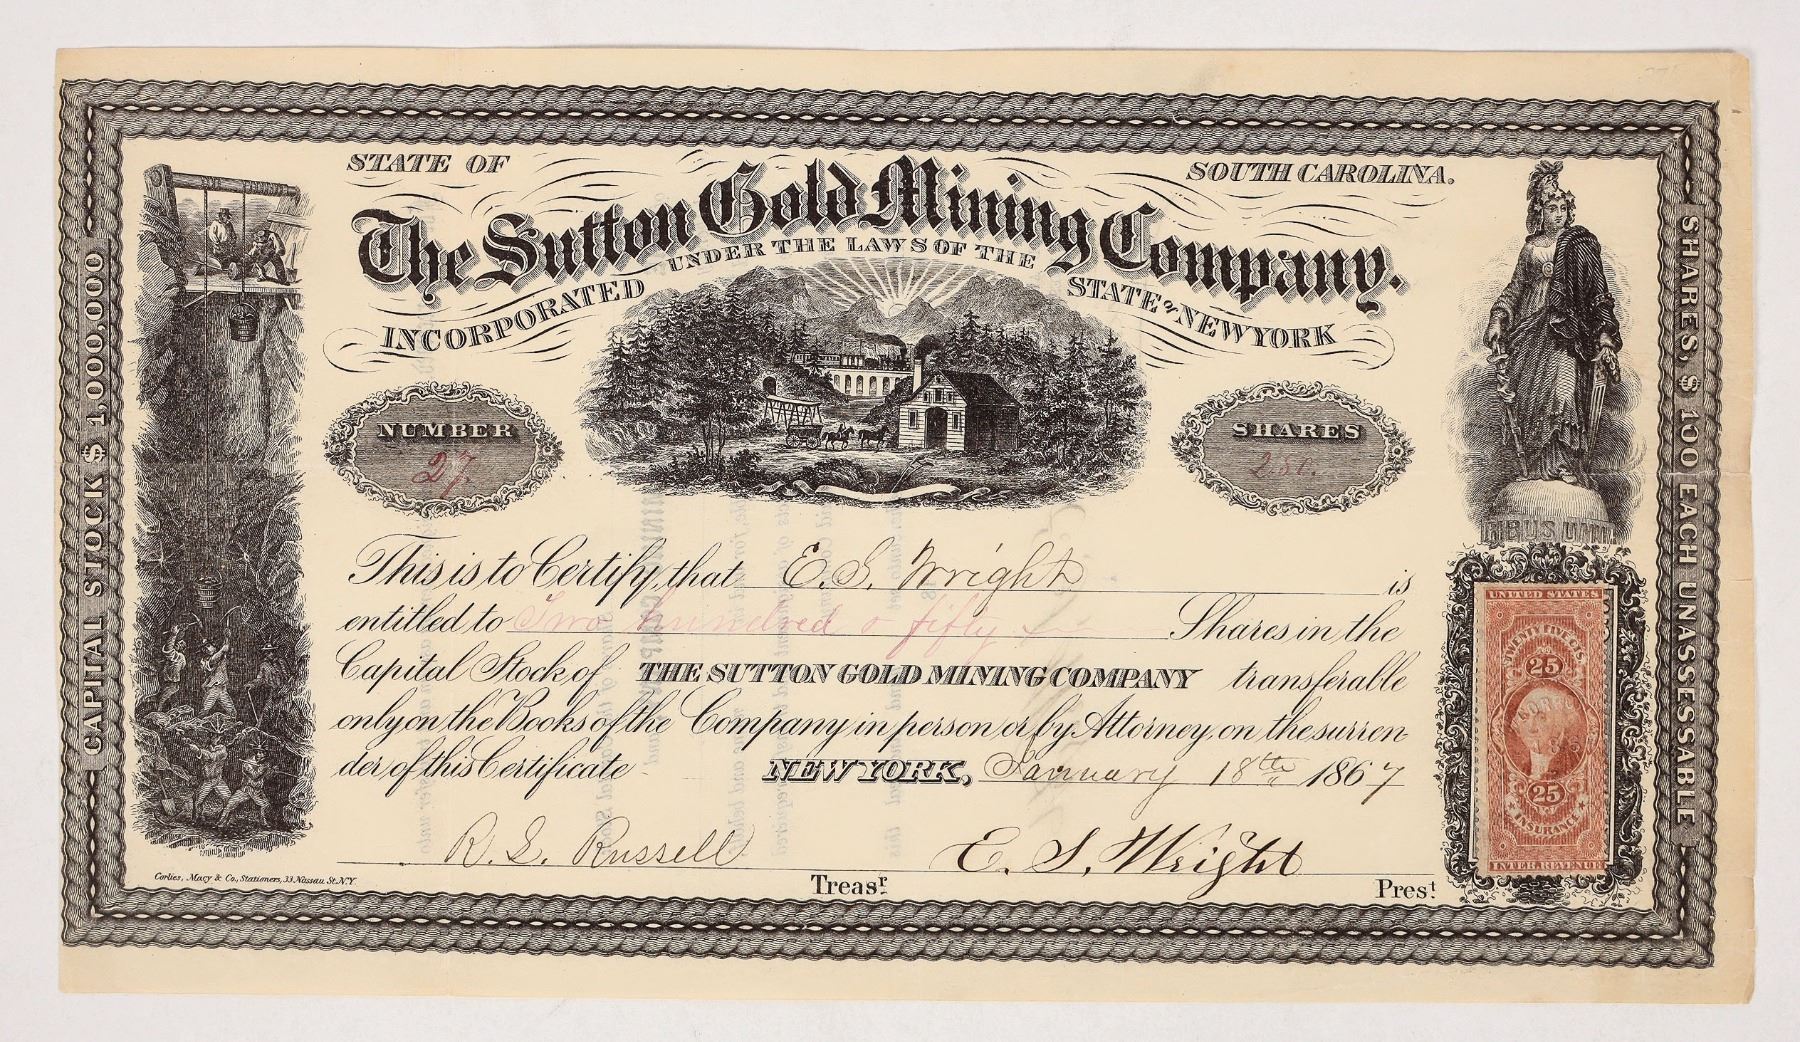 STATE OF
SOUTH CAROLINA.
The Sutton Gold Mining Company.
INCORPORATED UNDER THE LAWS OF THE STATE OF NEW YORK
CAPITAL STOCK $ 1,000,000
SHARES, $ 100 EACH UNASSESSABLE
NUMBER
27.
SHARES
250.
This is to Certify, that E. S. Wright is
entitled to Two hundred & fifty Shares in the
Capital Stock of THE SUTTON GOLD MINING COMPANY transferable
only on the Books of the Company in person or by Attorney on the surren-
der of this Certificate NEW YORK, January 18th 1867
R. L. Russell
Treasr.
E. S. Wright
Prest.
Corlies, Macy & Co., Stationers, 33 Nassau St. N.Y.
RIBUS UNUM
UNITED STATES
TWENTY FIVE CTS.
25
25
INSURANCE
INTER. REVENUE